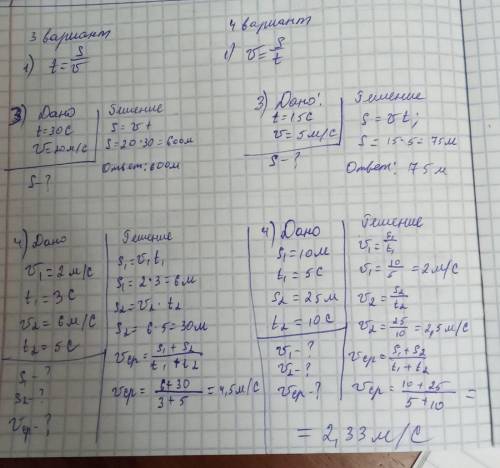 3 вариант
1) t = S/v
3) Дано
t = 30 с
v = 20 м/с
S - ?
Решение
S = v t
S = 20 · 30 = 600 м
Ответ: 600 м
4) Дано
v₁ = 2 м/с
t₁ = 3 с
v₂ = 6 м/с
t₂ = 5 с
S₁ - ?
S₂ - ?
vср - ?
Решение
S₁ = v₁ t₁
S₁ = 2 · 3 = 6 м
S₂ = v₂ · t₂
S₂ = 6 · 5 = 30 м
vср = S₁ + S₂ / t₁ + t₂
vср = 6 + 30 / 3 + 5 = 4,5 м/с
4 вариант
1) v = S/t
3) Дано:
t = 15 с
v = 5 м/с
S - ?
Решение
S = v t;
S = 15 · 5 = 75 м
Ответ: 75 м
4) Дано
S₁ = 10 м
t₁ = 5 с
S₂ = 25 м
t₂ = 10 с
v₁ - ?
v₂ - ?
vср - ?
Решение
v₁ = S₁/t₁
v₁ = 10/5 = 2 м/с
v₂ = S₂/t₂
v₂ = 25/10 = 2,5 м/с
vср = S₁ + S₂ / t₁ + t₂
vср = 10 + 25 / 5 + 10 =
= 2,33 м/с